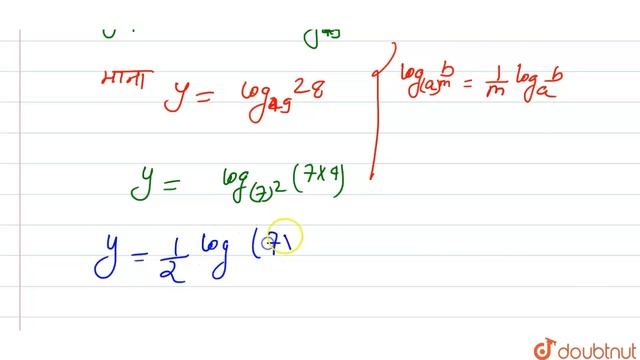 माना
y = log₄₉ 28
log₍ₐ₎ᵐ b = 1/m logₐ b
y = log₍₇₎² (7×4)
y = 1/2 log (7
doubtnut